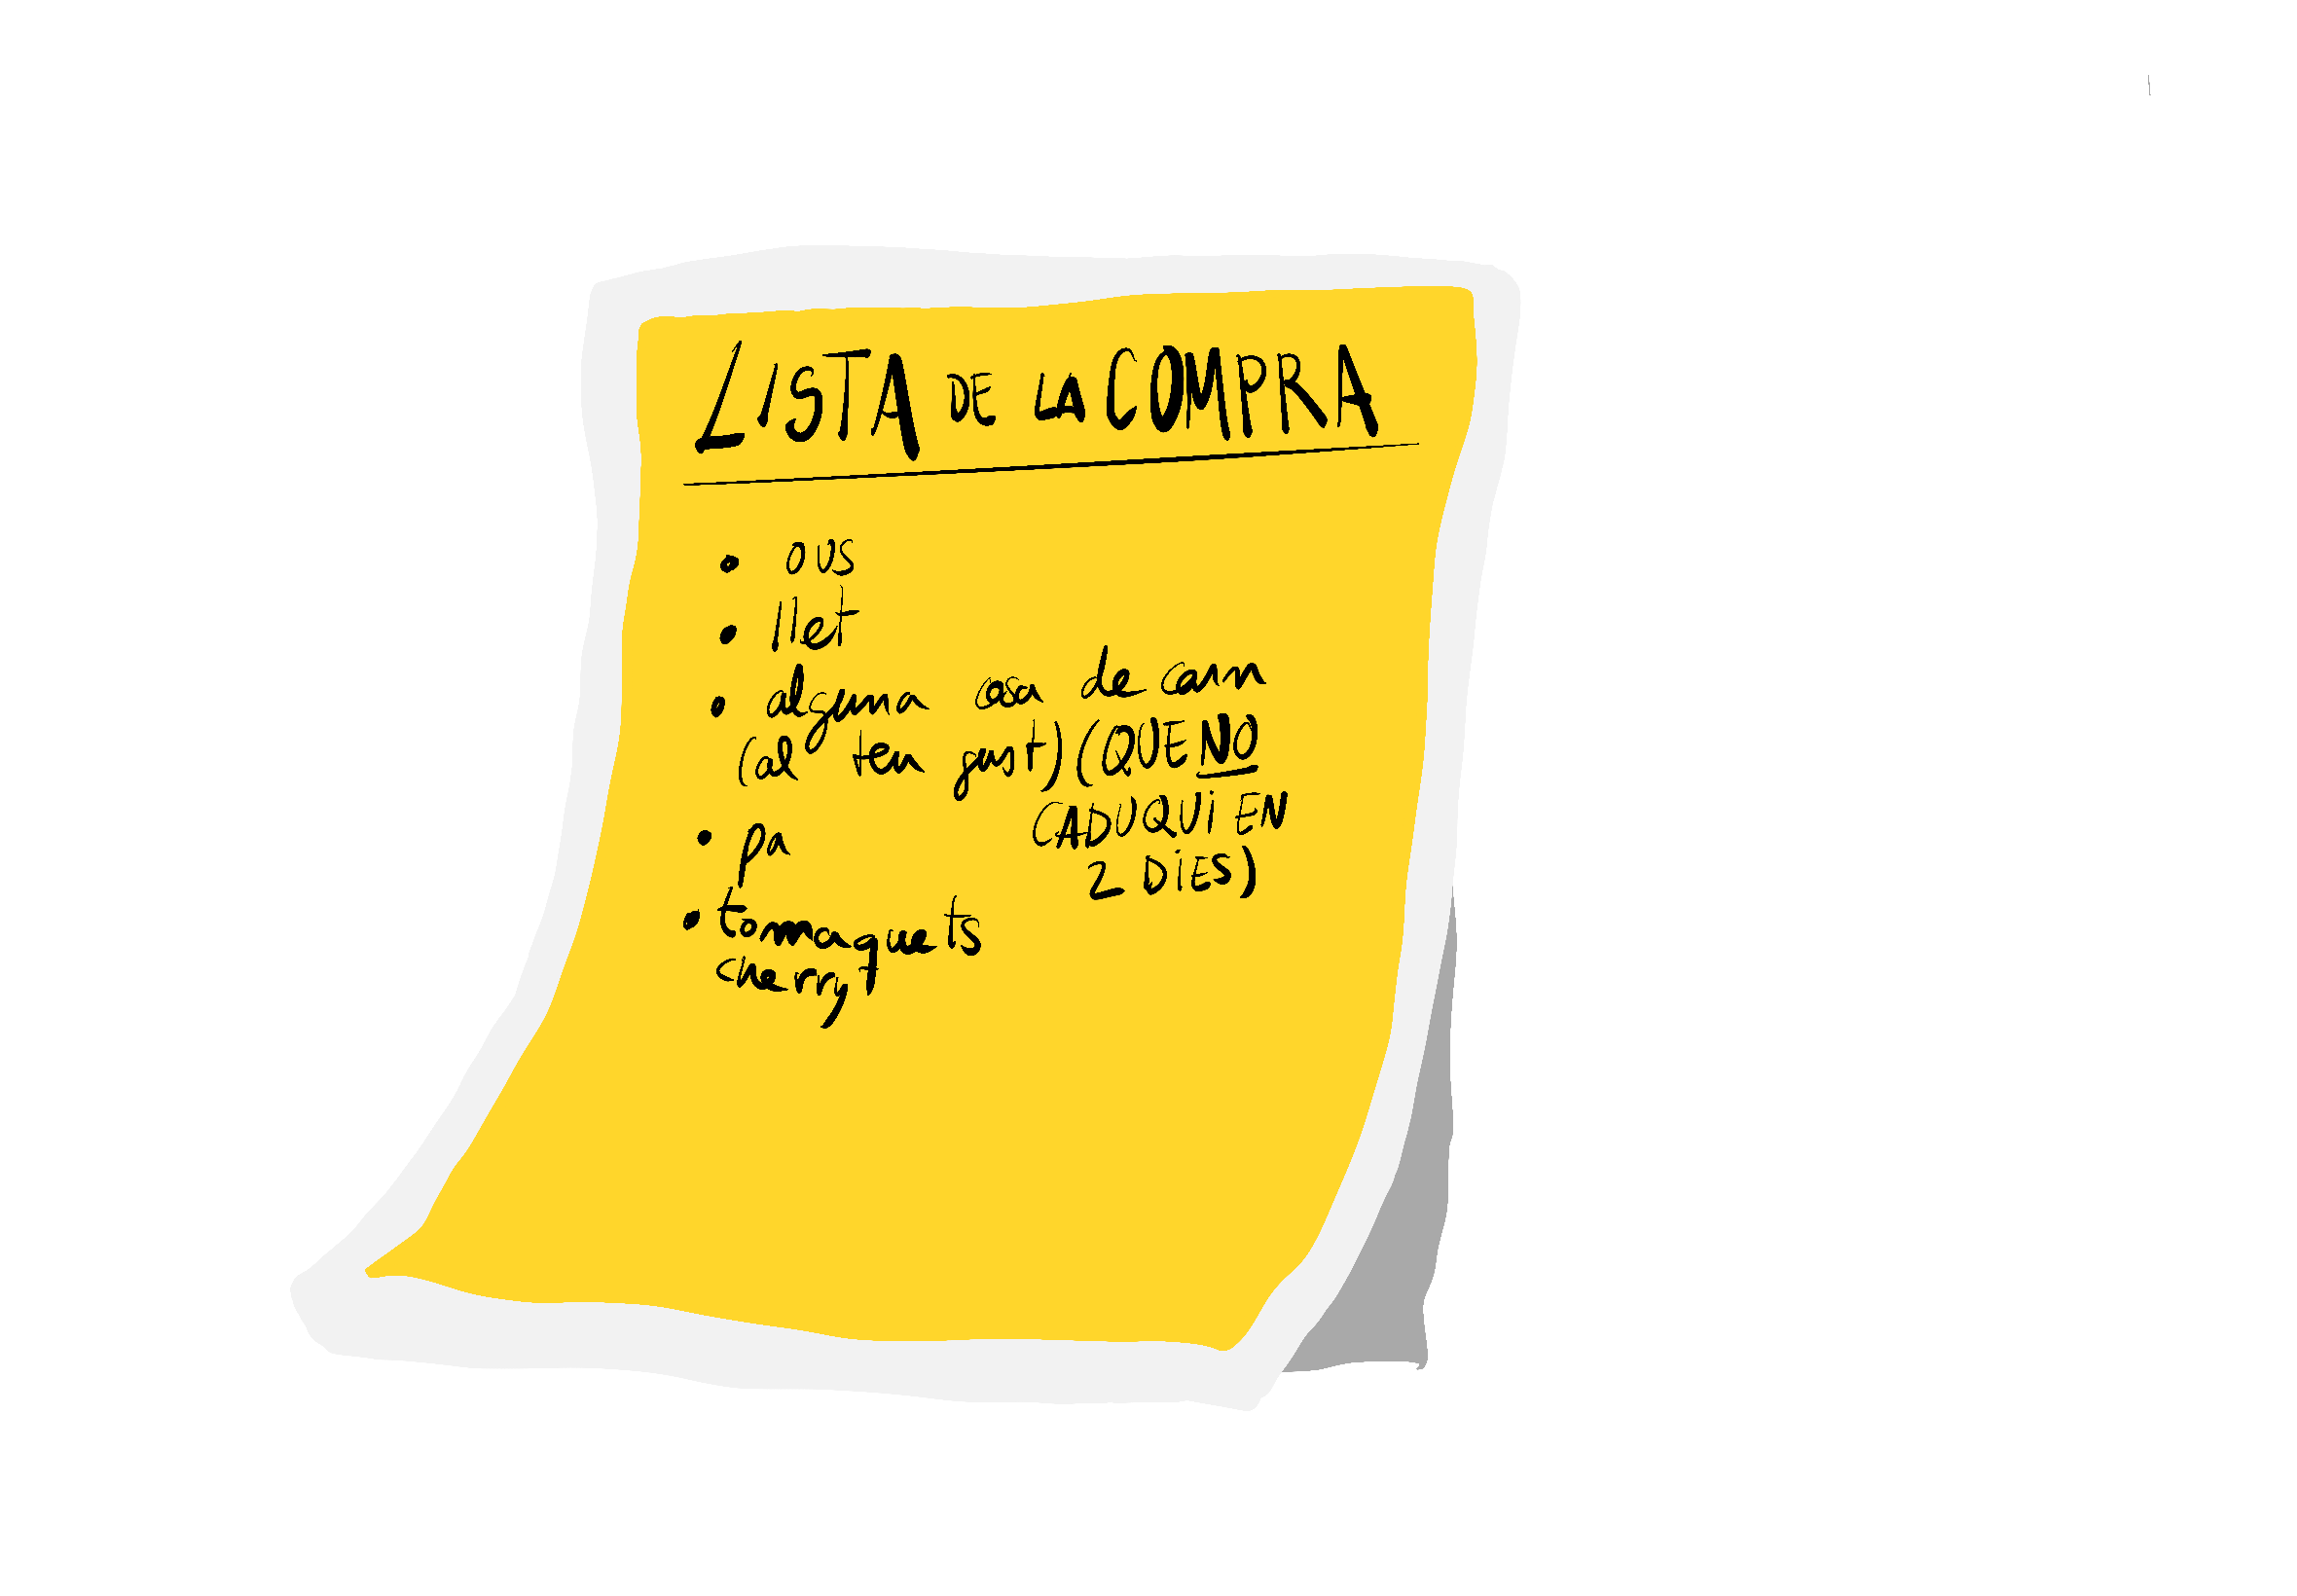 LISTA DE LA COMPRA
• ous
• llet
• alguna cosa de carn
(al teu gust) (QUE NO
CADUQUI EN
2 DIES)
• pa
• tomaquets
cherry